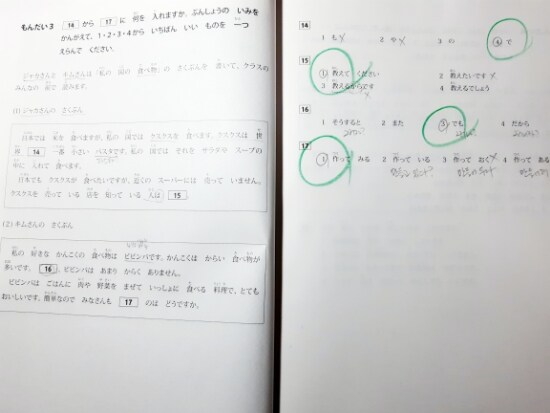 もんだい3 14 から 17 に 何を 入れますか。ぶんしょうの いみを
かんがえて、1・2・3・4から いちばん いい ものを 一つ
えらんで ください。
ジャカさんと キムさんは「私の 国の 食べ物」の さくぶんを 書いて、クラスの
みんなの 前で 読みます。
(1) ジャカさんの さくぶん
日本では 米を 食べますが、私の 国では クスクスが 食べます。クスクスは 世
界 14 一番 小さい パスタです。私の 国では それを サラダや スープの
中に 入れて 食べます。
日本でも クスクスが 食べたいですが、近くの スーパーには 売って いません。
クスクスを 売って いる 店を 知って いる 人は 15 。
(2) キムさんの さくぶん
私の 好きな かんこくの 食べ物は ビビンバです。かんこくは からい 食べ物が
多いです。 16 、ビビンバは あまり からく ありません。
ビビンバは ごはんに 肉や 野菜を まぜて いっしょに 食べる 料理で、とても
おいしいです。簡単なので みなさんも 17 のは どうですか。
14
1 も 2 や 3 の 4 で
15
1 教えて ください 2 教えたいです
3 教えるからです 4 教えるでしょう
16
1 そうすると 2 また 3 でも 4 だから
17
1 作って みる 2 作って いる 3 作って おく 4 作って ある